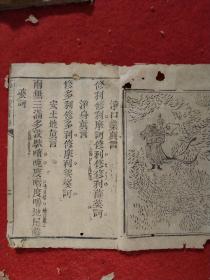 淨口業真言
修利修利摩訶修利修修利薩婆訶
淨身真言
修多利修多利修摩利娑婆訶
安土地真言
南無三滿多
度嚕度嚕地尾薩
婆訶